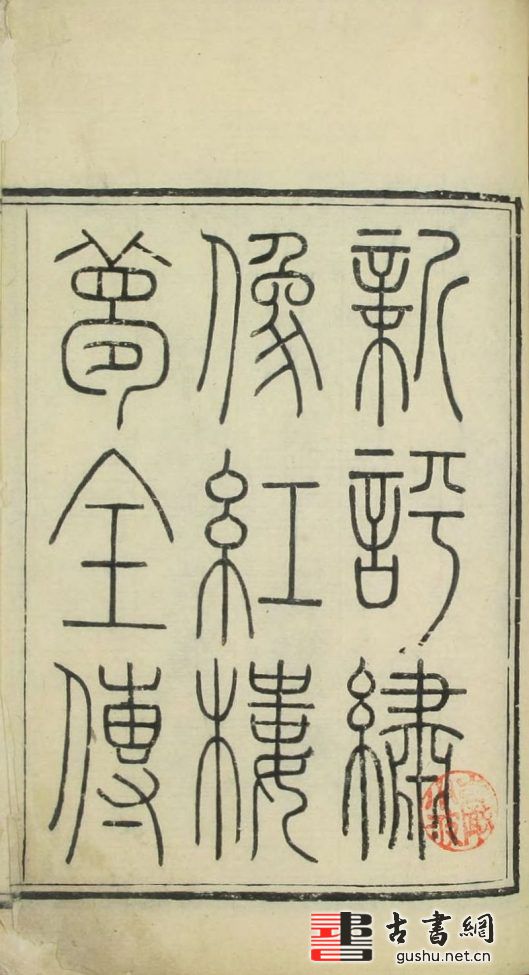 新評繡
像紅樓
夢全傳
古書網
gushu.net.cn